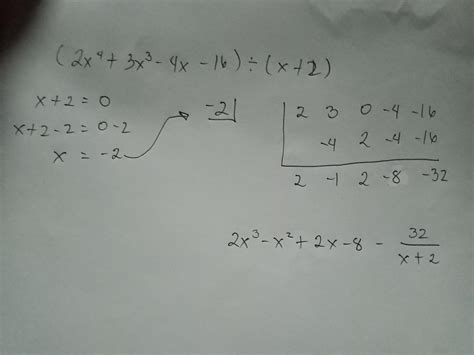 (2x⁴ + 3x³ - 4x - 16) ÷ (x + 2)
x + 2 = 0
x + 2 - 2 = 0 - 2
x = -2
-2| 2 3 0 -4 -16
-4 2 -4 -16
2 -1 2 -8 -32
2x³ - x² + 2x - 8 - 32/(x + 2)